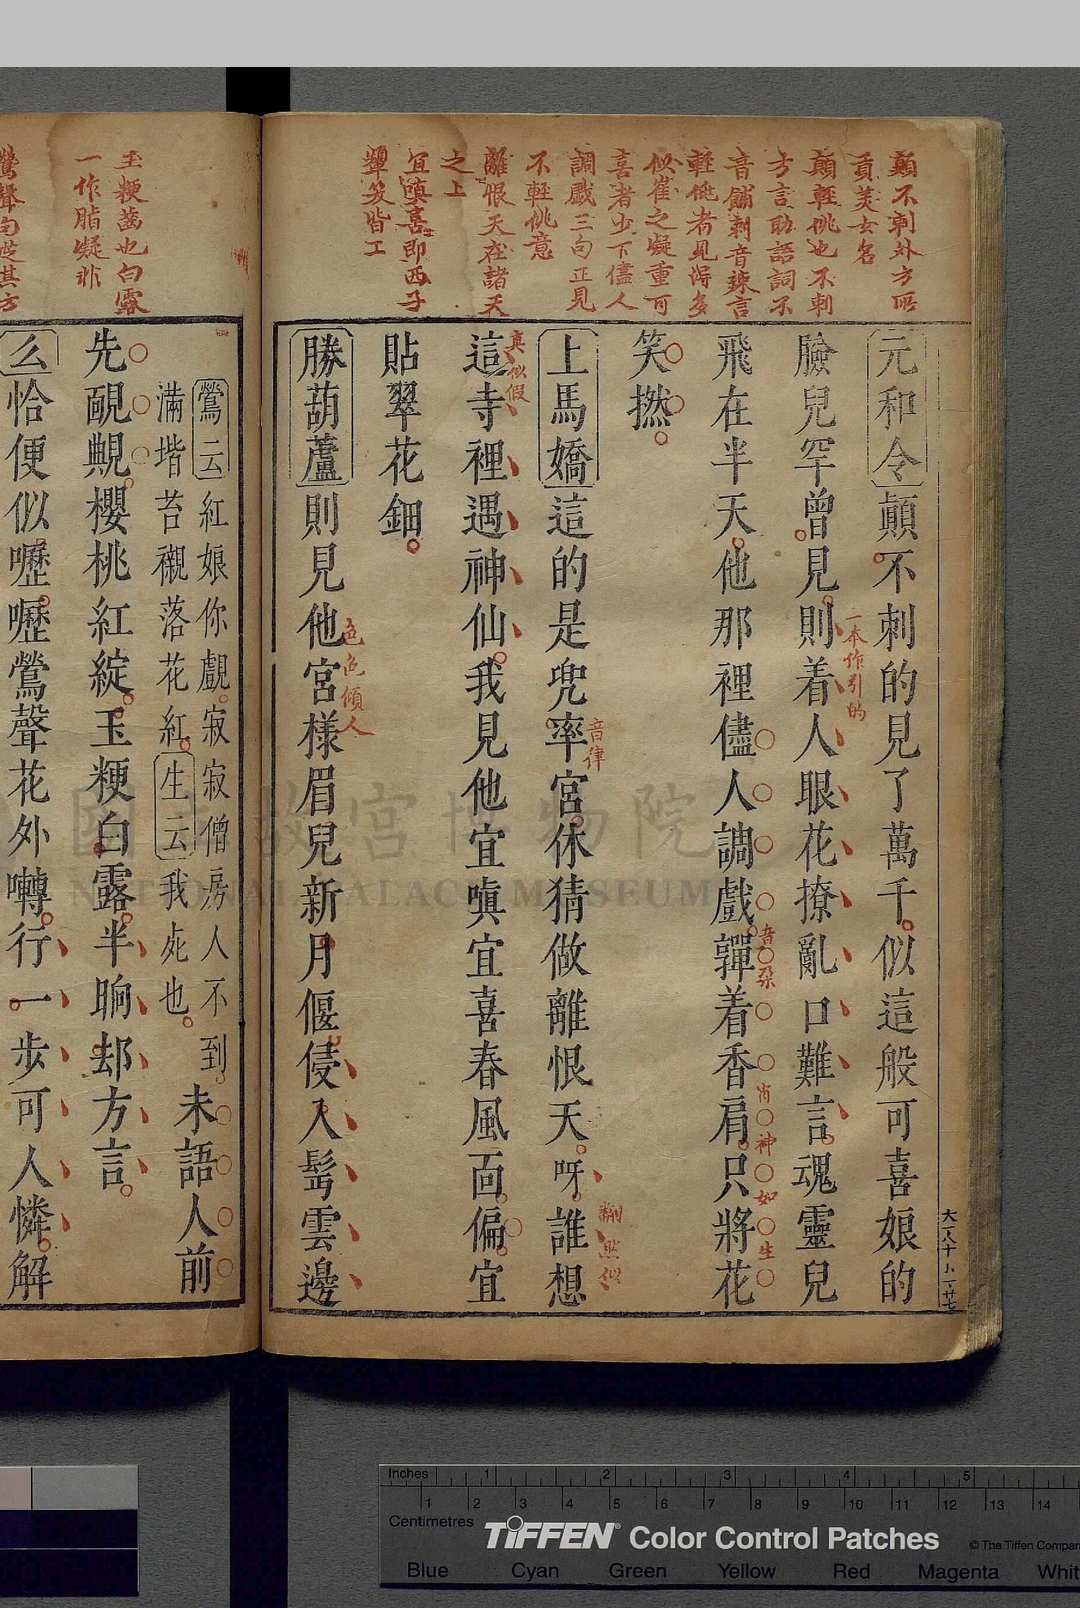 顛不剌外方所
貢美女名
顛輕佻也不剌
方言助語詞不
音餔剌音辣言
輕佻者見得多
似崔之凝重可
喜者少下儘人
調戲三句正見
不輕佻意
離恨天在諸天
之上
宜嗔喜即西子
顰笑皆工
元和令顛不剌的見了萬千似這般可喜娘的
臉兒罕曾見則着人眼花撩亂口難言魂靈兒
一本作引的
飛在半天他那裡儘人調戲嚲着香肩只將花
音朶
肖神如生
笑撚
上馬嬌這的是兜率宮休猜做離恨天呀誰想
音律
翻然似
這寺裡遇神仙我見他宜嗔宜喜春風面偏宜
真似假
貼翠花鈿
勝葫蘆則見他宮樣眉兒新月偃侵入鬂雲邊
色色傾人
大一八十小二廿七
玉粳齒也白露
一作脂凝非
鶯聲句從其方
鶯云紅娘你覷寂寂僧房人不到
滿堦苔襯落花紅生云我死也未語人前
先靦覥櫻桃紅綻玉粳白露半晌却方言
么恰便似嚦嚦鶯聲花外囀行一步可人憐解
國立故宮博物院
NATIONAL PALACE MUSEUM
Inches 1 2 3 4 5
1 2 3 4 5 6 7 8 9 10 11 12 13 14
Centimetres
TIFFEN® Color Control Patches
© The Tiffen Compan
Blue Cyan Green Yellow Red Magenta Whit